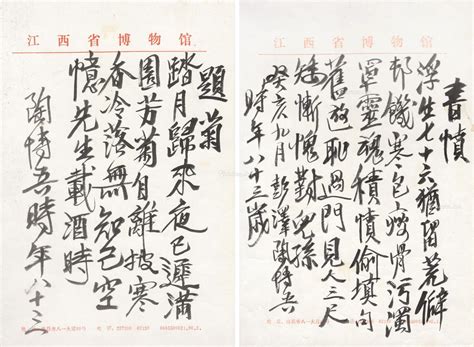 江西省博物馆
題菊
踏月歸來夜已遲滿
園芳菊自離披寒
香冷落無知己空
憶先生載酒時
陶博吾時年八十三
江西省博物馆
書憤
浮生七十六猶留荒僻
邨饑寒包瘦骨污濁
罩靈魂積憤偷填句
舊遊恥過門見人三尺
矮慚愧對兒孫
癸亥九月彭澤陶博吾
時年八十三歲